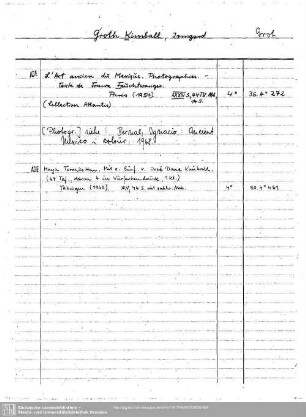 Groth Kimball, Irmgard
Grot
L'Art ancien du Mexique. Photographies. -
Texte de Franz Feuchtwanger.
Paris (1954). 4° 36.4° 272
(Collection Atlantis)
[Photogr.] siehe: Bernal, Ignacio: Ancient
Mexico in colour, 1968.
Maya Terrakotten. Mit e. Einf. v. José Dave Kimball.
(47 Taf., davon 4 in Vierfarbendruck, 1 Kt.)
Tübingen (1960). 4° 50.4° 461